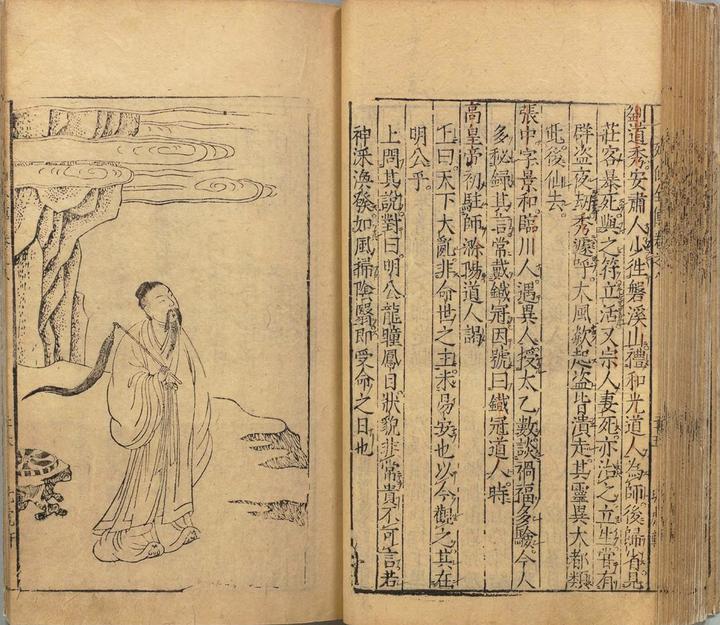 劉道秀安肅人少從磐溪山禮和光道人為師後歸省見
莊客暴死與之符立活又宗人妻死亦治之立生嘗有
群盗夜刼秀遽呼大風欻起盗皆潰走其靈異大都類
此後仙去
張中字景和臨川人遇異人授太乙數談禍福多驗今人
多秘錄其言常戴鐵冠因號曰鐵冠道人時
高皇帝初駐師滁陽道人謁
上曰天下大亂非命世之主未易安也以今觀之其在
明公乎
上問其説對曰明公龍瞳鳳目狀貌非常貴不可言若
神采渙發如風掃陰翳即受命之日也